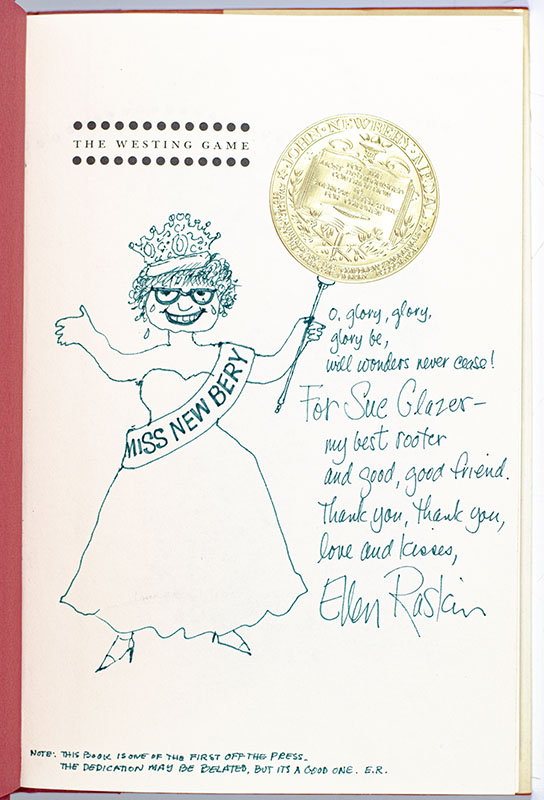 THE WESTING GAME
JOHN NEWBERY MEDAL
MISS NEW BERY
O, glory, glory,
glory be,
will wonders never cease!
For Sue Glazer—
my best rooter
and good, good friend.
Thank you, thank you,
love and kisses,
Ellen Raskin
NOTE: THIS BOOK IS ONE OF THE FIRST OFF THE PRESS.
THE DEDICATION MAY BE BELATED, BUT ITS A GOOD ONE. E.R.